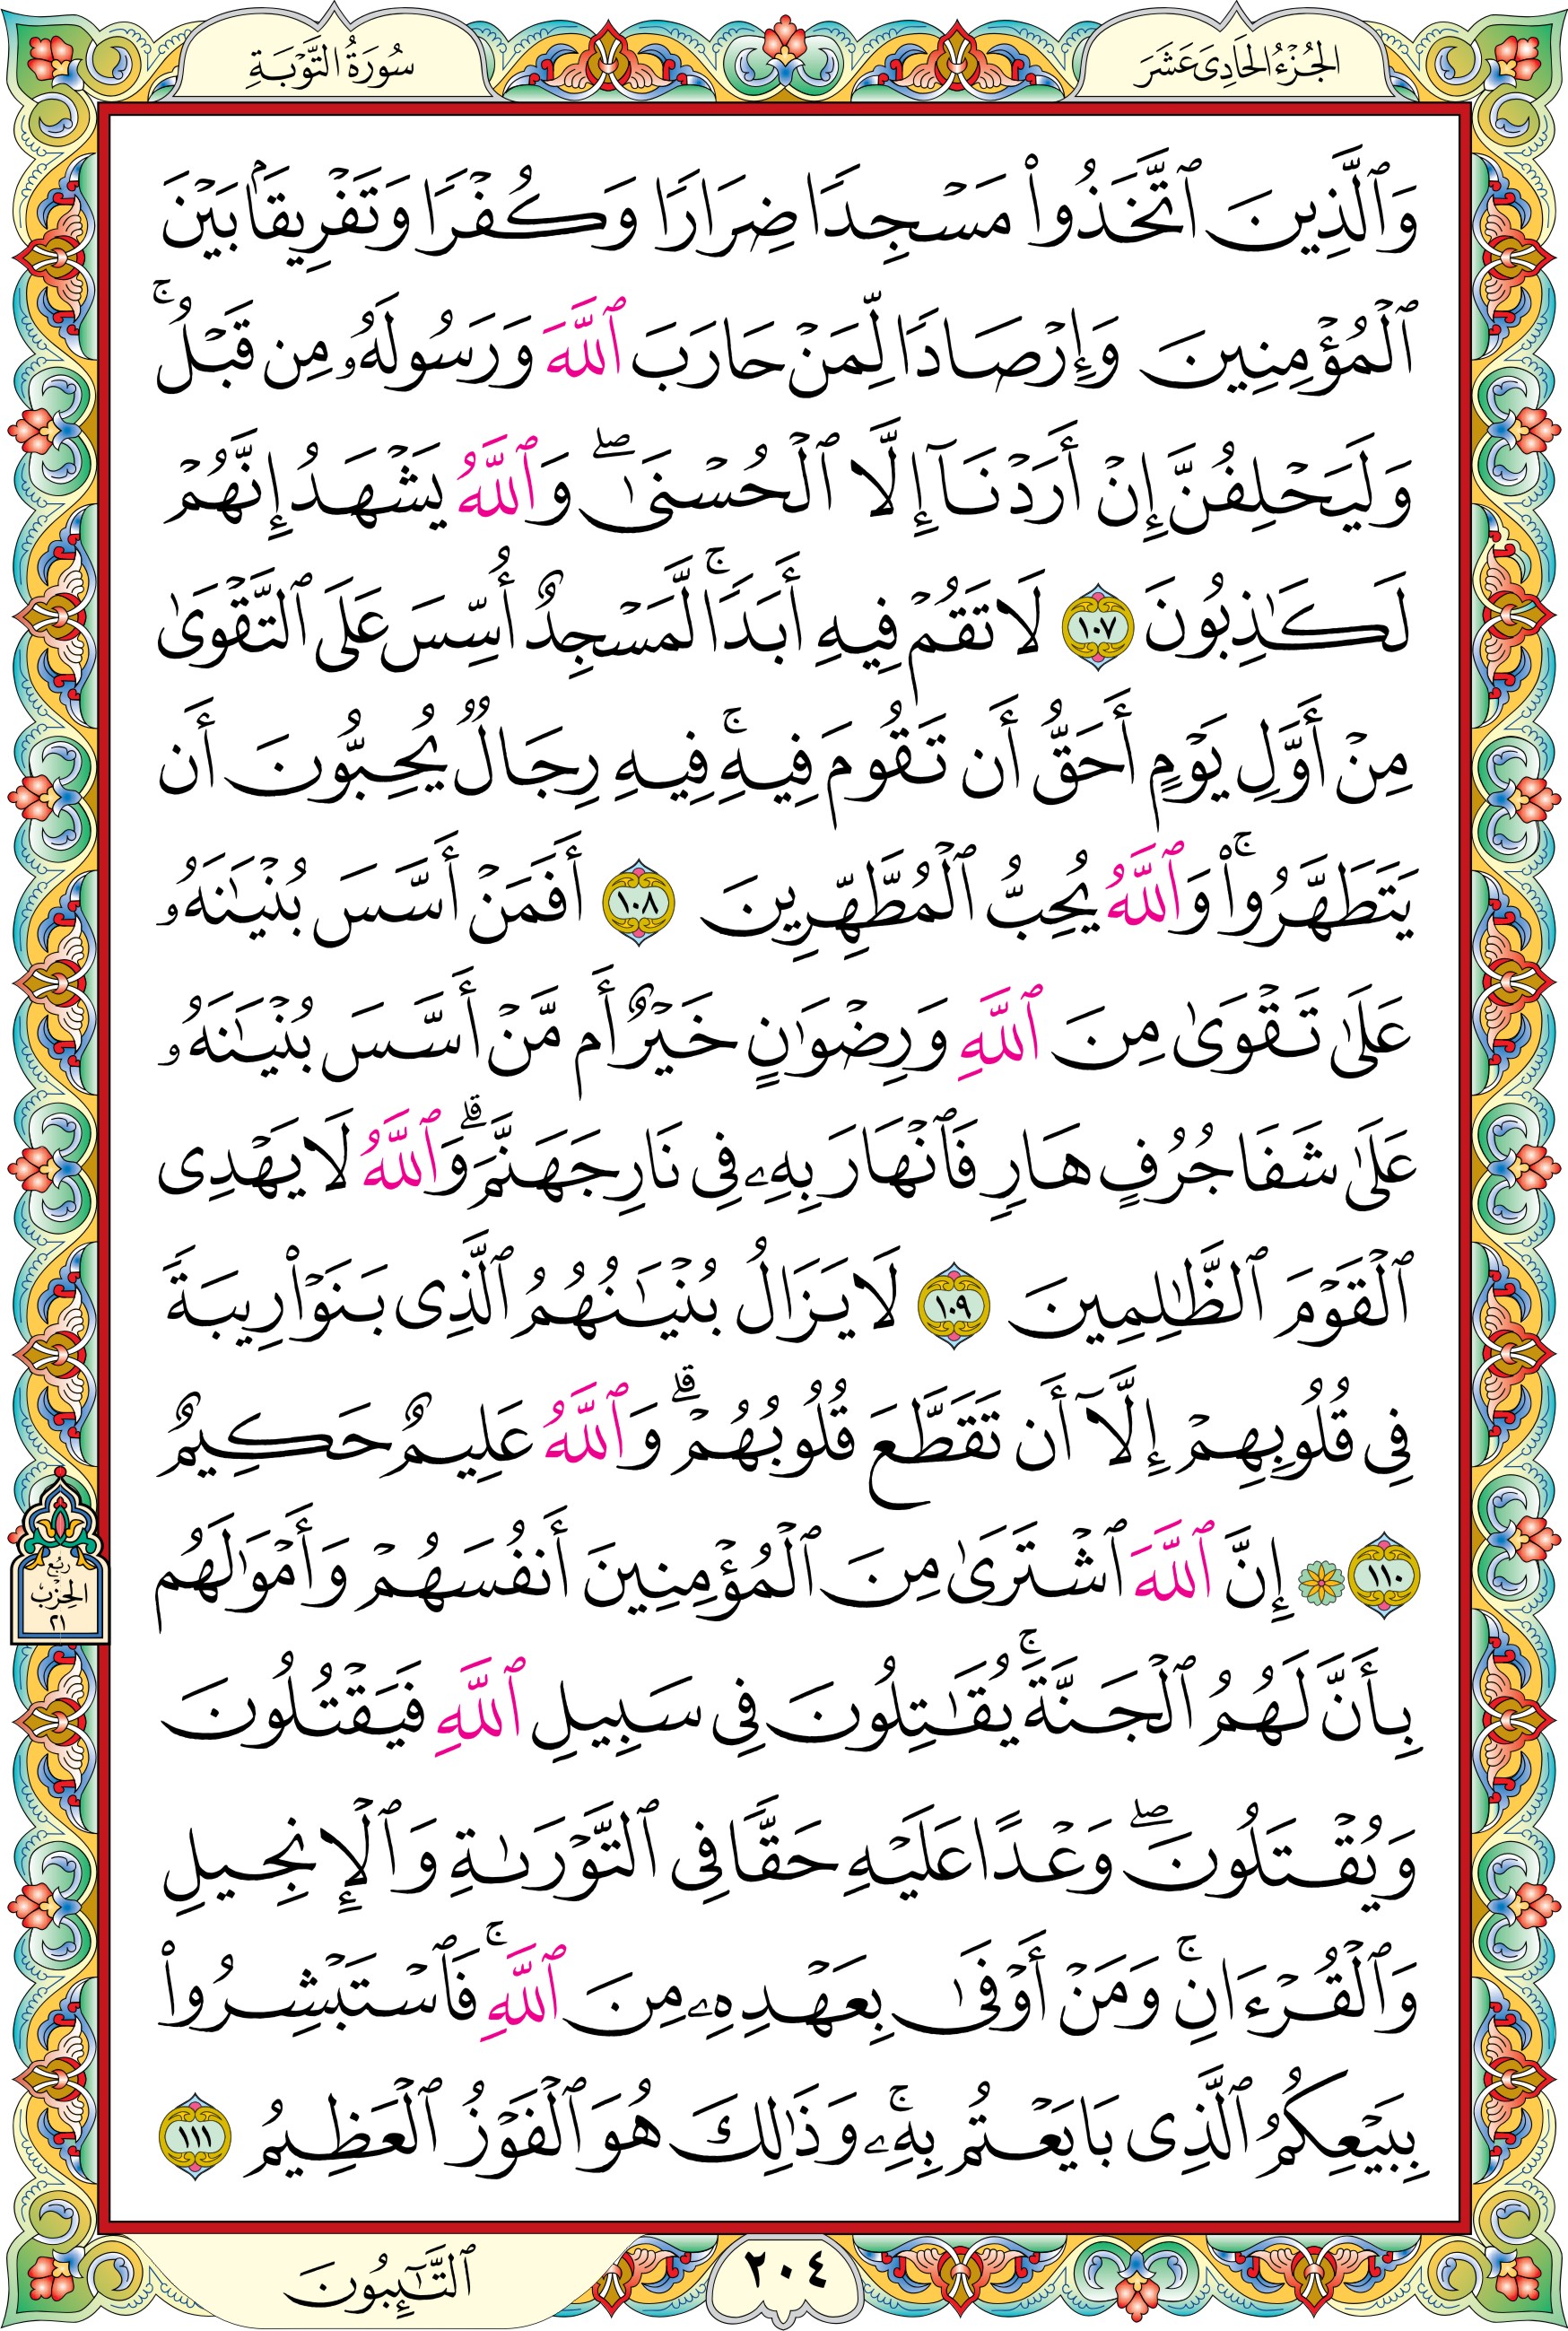 الجُزْءُ الحَادِى عَشَرَ
سُورَةُ التَّوۡبَةِ
وَٱلَّذِينَ ٱتَّخَذُوا۟ مَسۡجِدًا ضِرَارًا وَكُفۡرًا وَتَفۡرِيقَۢا بَيۡنَ
ٱلۡمُؤۡمِنِينَ وَإِرۡصَادًا لِّمَنۡ حَارَبَ ٱللَّهَ وَرَسُولَهُۥ مِن قَبۡلُۚ
وَلَيَحۡلِفُنَّ إِنۡ أَرَدۡنَآ إِلَّا ٱلۡحُسۡنَىٰۖ وَٱللَّهُ يَشۡهَدُ إِنَّهُمۡ
لَكَـٰذِبُونَ ١٠٧ لَا تَقُمۡ فِيهِ أَبَدًاۚ لَّمَسۡجِدٌ أُسِّسَ عَلَى ٱلتَّقۡوَىٰ
مِنۡ أَوَّلِ يَوۡمٍ أَحَقُّ أَن تَقُومَ فِيهِۚ فِيهِ رِجَالٌ يُحِبُّونَ أَن
يَتَطَهَّرُوا۟ۚ وَٱللَّهُ يُحِبُّ ٱلۡمُطَّهِّرِينَ ١٠٨ أَفَمَنۡ أَسَّسَ بُنۡيَـٰنَهُۥ
عَلَىٰ تَقۡوَىٰ مِنَ ٱللَّهِ وَرِضۡوَٰنٍ خَيۡرٌ أَم مَّنۡ أَسَّسَ بُنۡيَـٰنَهُۥ
عَلَىٰ شَفَا جُرُفٍ هَارٍ فَٱنۡهَارَ بِهِۦ فِى نَارِ جَهَنَّمَۗ وَٱللَّهُ لَا يَهۡدِى
ٱلۡقَوۡمَ ٱلظَّـٰلِمِينَ ١٠٩ لَا يَزَالُ بُنۡيَـٰنُهُمُ ٱلَّذِى بَنَوۡا۟ رِيبَةً
فِى قُلُوبِهِمۡ إِلَّآ أَن تَقَطَّعَ قُلُوبُهُمۡۗ وَٱللَّهُ عَلِيمٌ حَكِيمٌ
١١٠ ۞ إِنَّ ٱللَّهَ ٱشۡتَرَىٰ مِنَ ٱلۡمُؤۡمِنِينَ أَنفُسَهُمۡ وَأَمۡوَٰلَهُم
رُبُعُ
الحِزۡبِ
٢١
بِأَنَّ لَهُمُ ٱلۡجَنَّةَۚ يُقَـٰتِلُونَ فِى سَبِيلِ ٱللَّهِ فَيَقۡتُلُونَ
وَيُقۡتَلُونَۖ وَعۡدًا عَلَيۡهِ حَقًّا فِى ٱلتَّوۡرَىٰةِ وَٱلۡإِنجِيلِ
وَٱلۡقُرۡءَانِۚ وَمَنۡ أَوۡفَىٰ بِعَهۡدِهِۦ مِنَ ٱللَّهِۚ فَٱسۡتَبۡشِرُوا۟
بِبَيۡعِكُمُ ٱلَّذِى بَايَعۡتُم بِهِۦۚ وَذَٰلِكَ هُوَ ٱلۡفَوۡزُ ٱلۡعَظِيمُ ١١١
٢٠٤
ٱلتَّـٰٓئِبُونَ